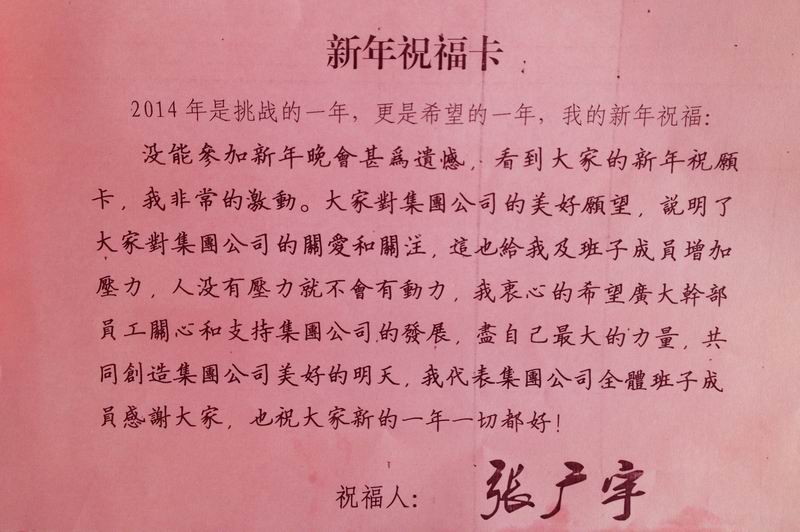 新年祝福卡
2014 年是挑战的一年，更是希望的一年，我的新年祝福：
没能參加新年晚會甚爲遺憾，看到大家的新年祝願
卡，我非常的激動。大家對集團公司的美好願望，説明了
大家對集團公司的關愛和關注，這也給我及班子成員增加
壓力，人没有壓力就不會有動力，我衷心的希望廣大幹部
員工關心和支持集團公司的發展，盡自己最大的力量，共
同創造集團公司美好的明天，我代表集團公司全體班子成
員感謝大家，也祝大家新的一年一切都好！
祝福人：张广宇